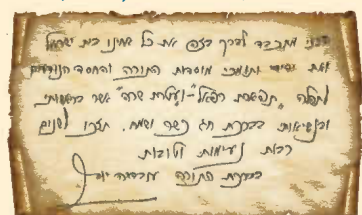 הנני מתכבד לברך בזה את כל אחינו בית ישראל
ואת ידידי ותומכי מוסדות התורה והחסד הנודעים
לתהלה "תפארת רפאל"-"ועטרת שרה" אשר בראשותי
ובנשיאותי בברכת חג כשר ושמח. תזכו לשנים
רבות נעימות וטובות
בברכת התורה עובדיה יוסף